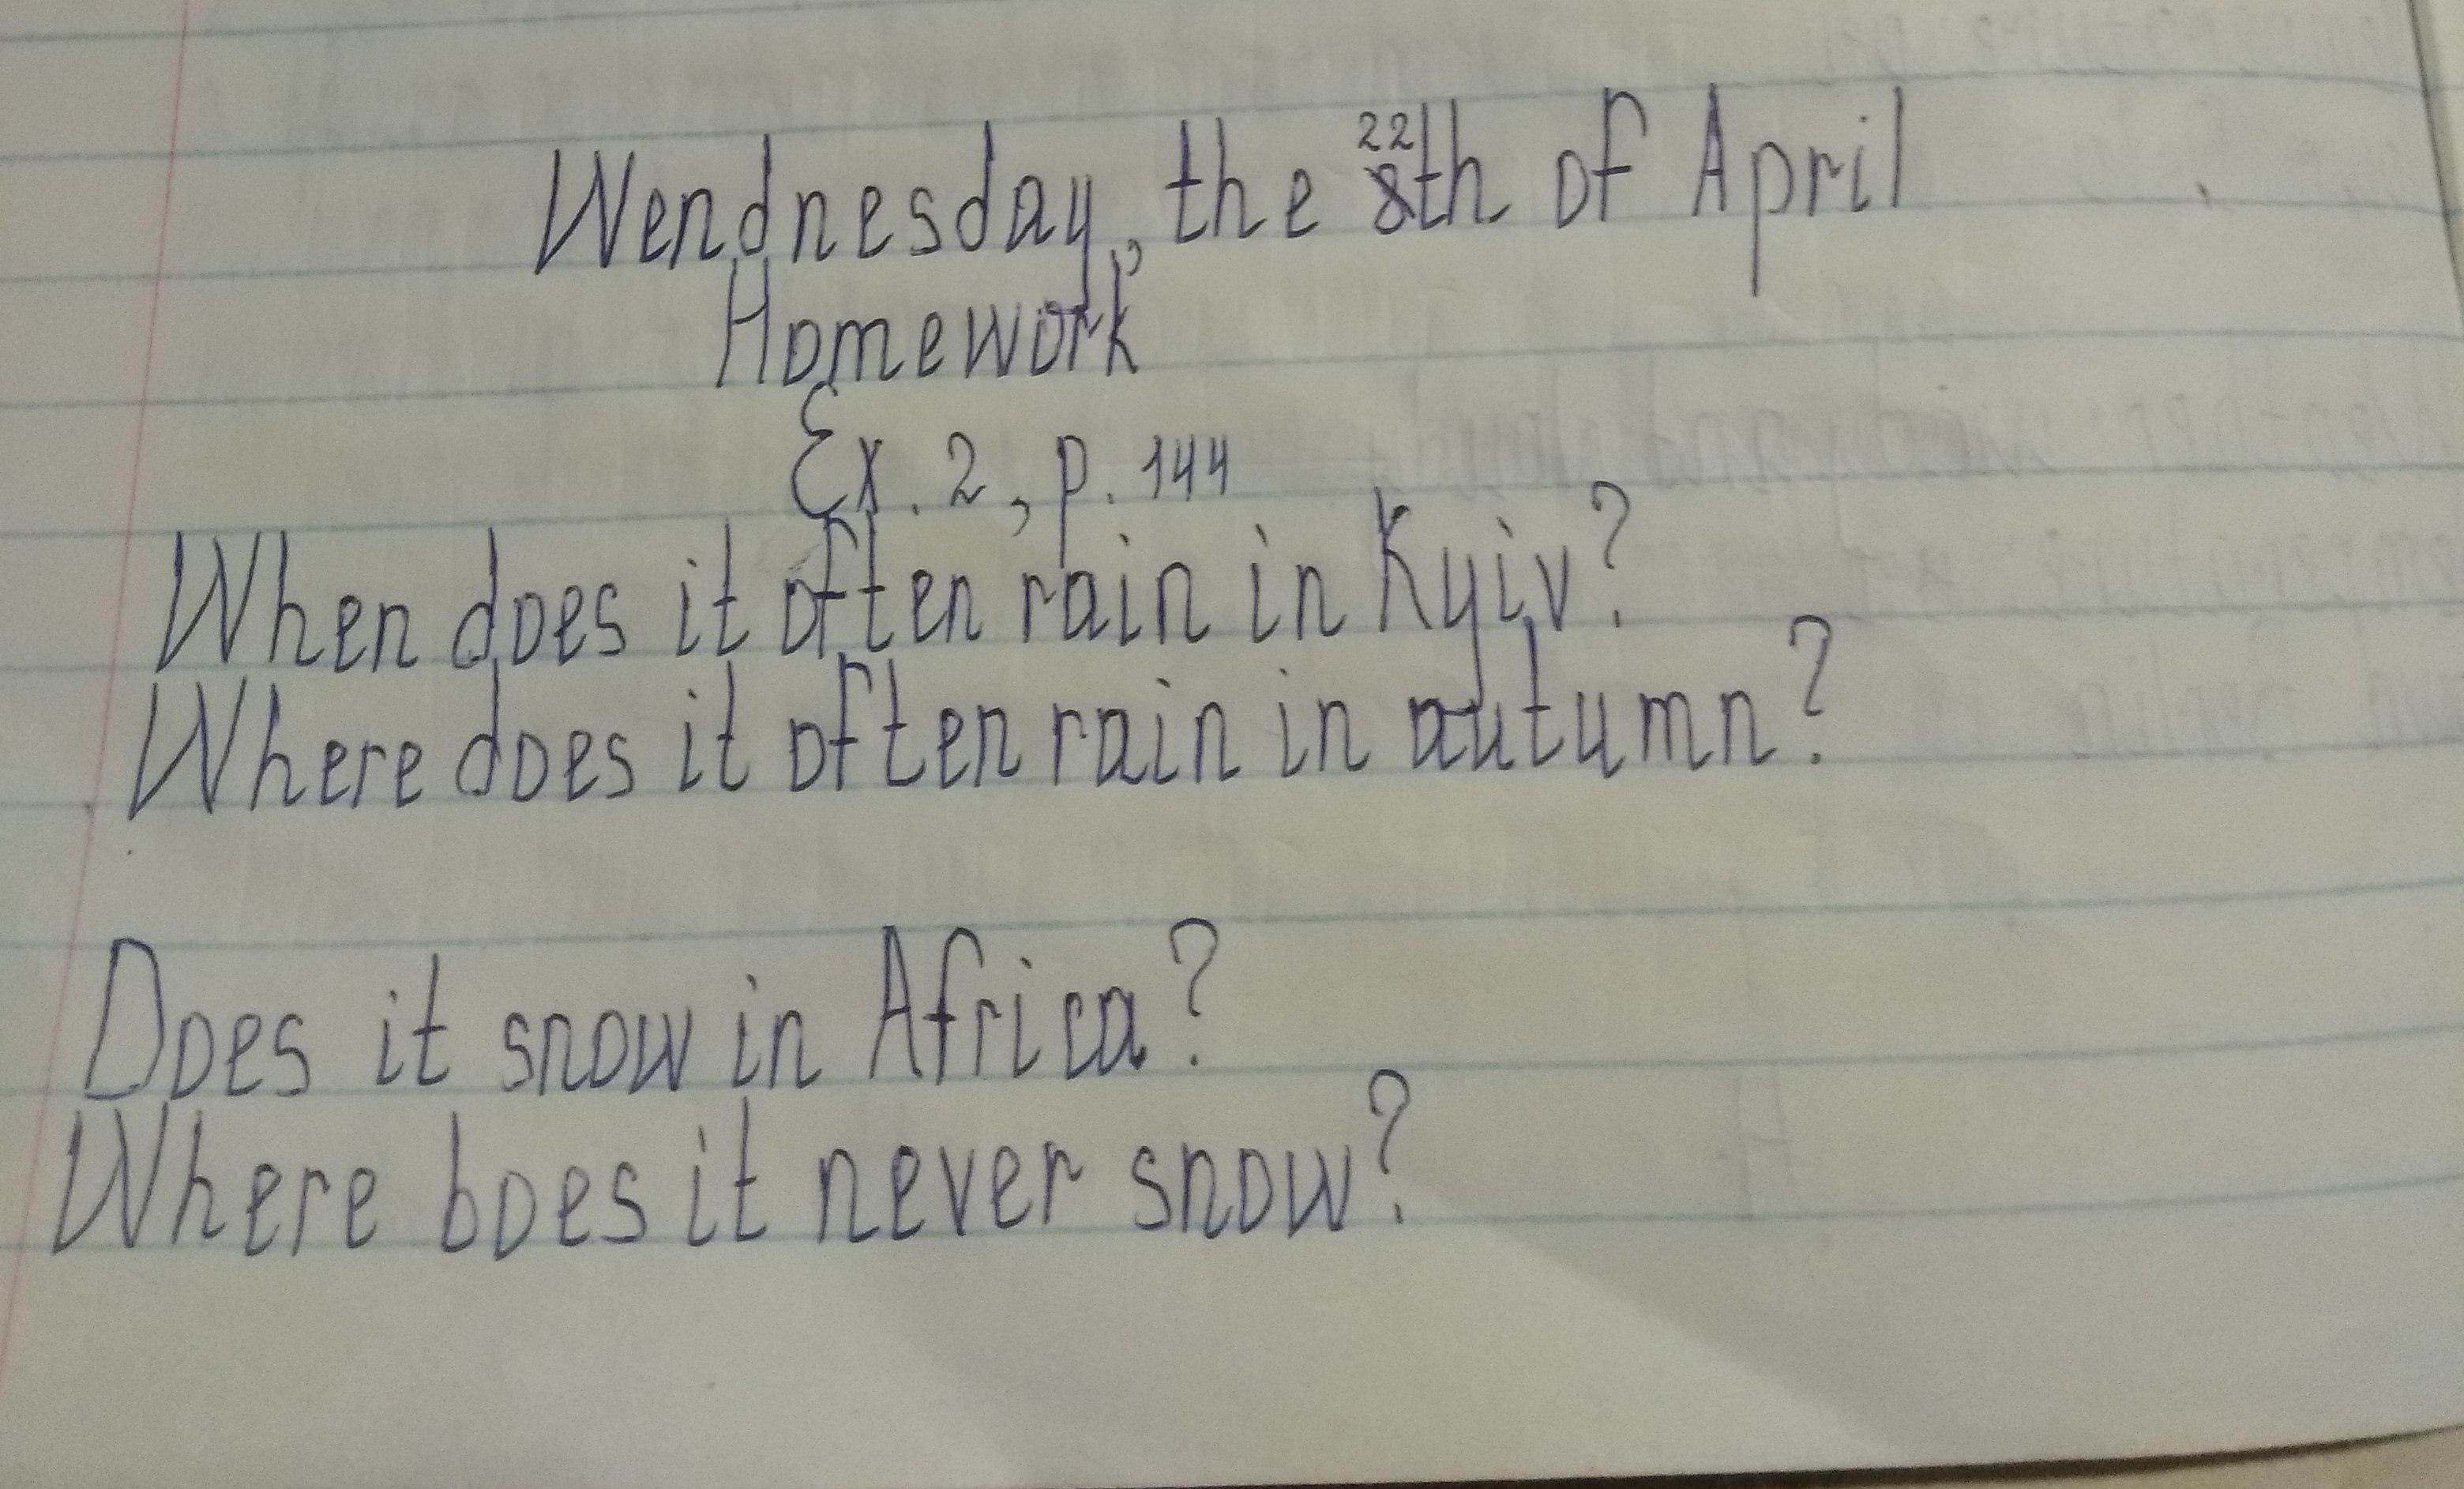 Wendnesday, the 22th of April
Homework
Ex. 2, p. 144
When does it often rain in Kyiv?
Where does it often rain in autumn?
Does it snow in Africa?
Where boes it never snow?